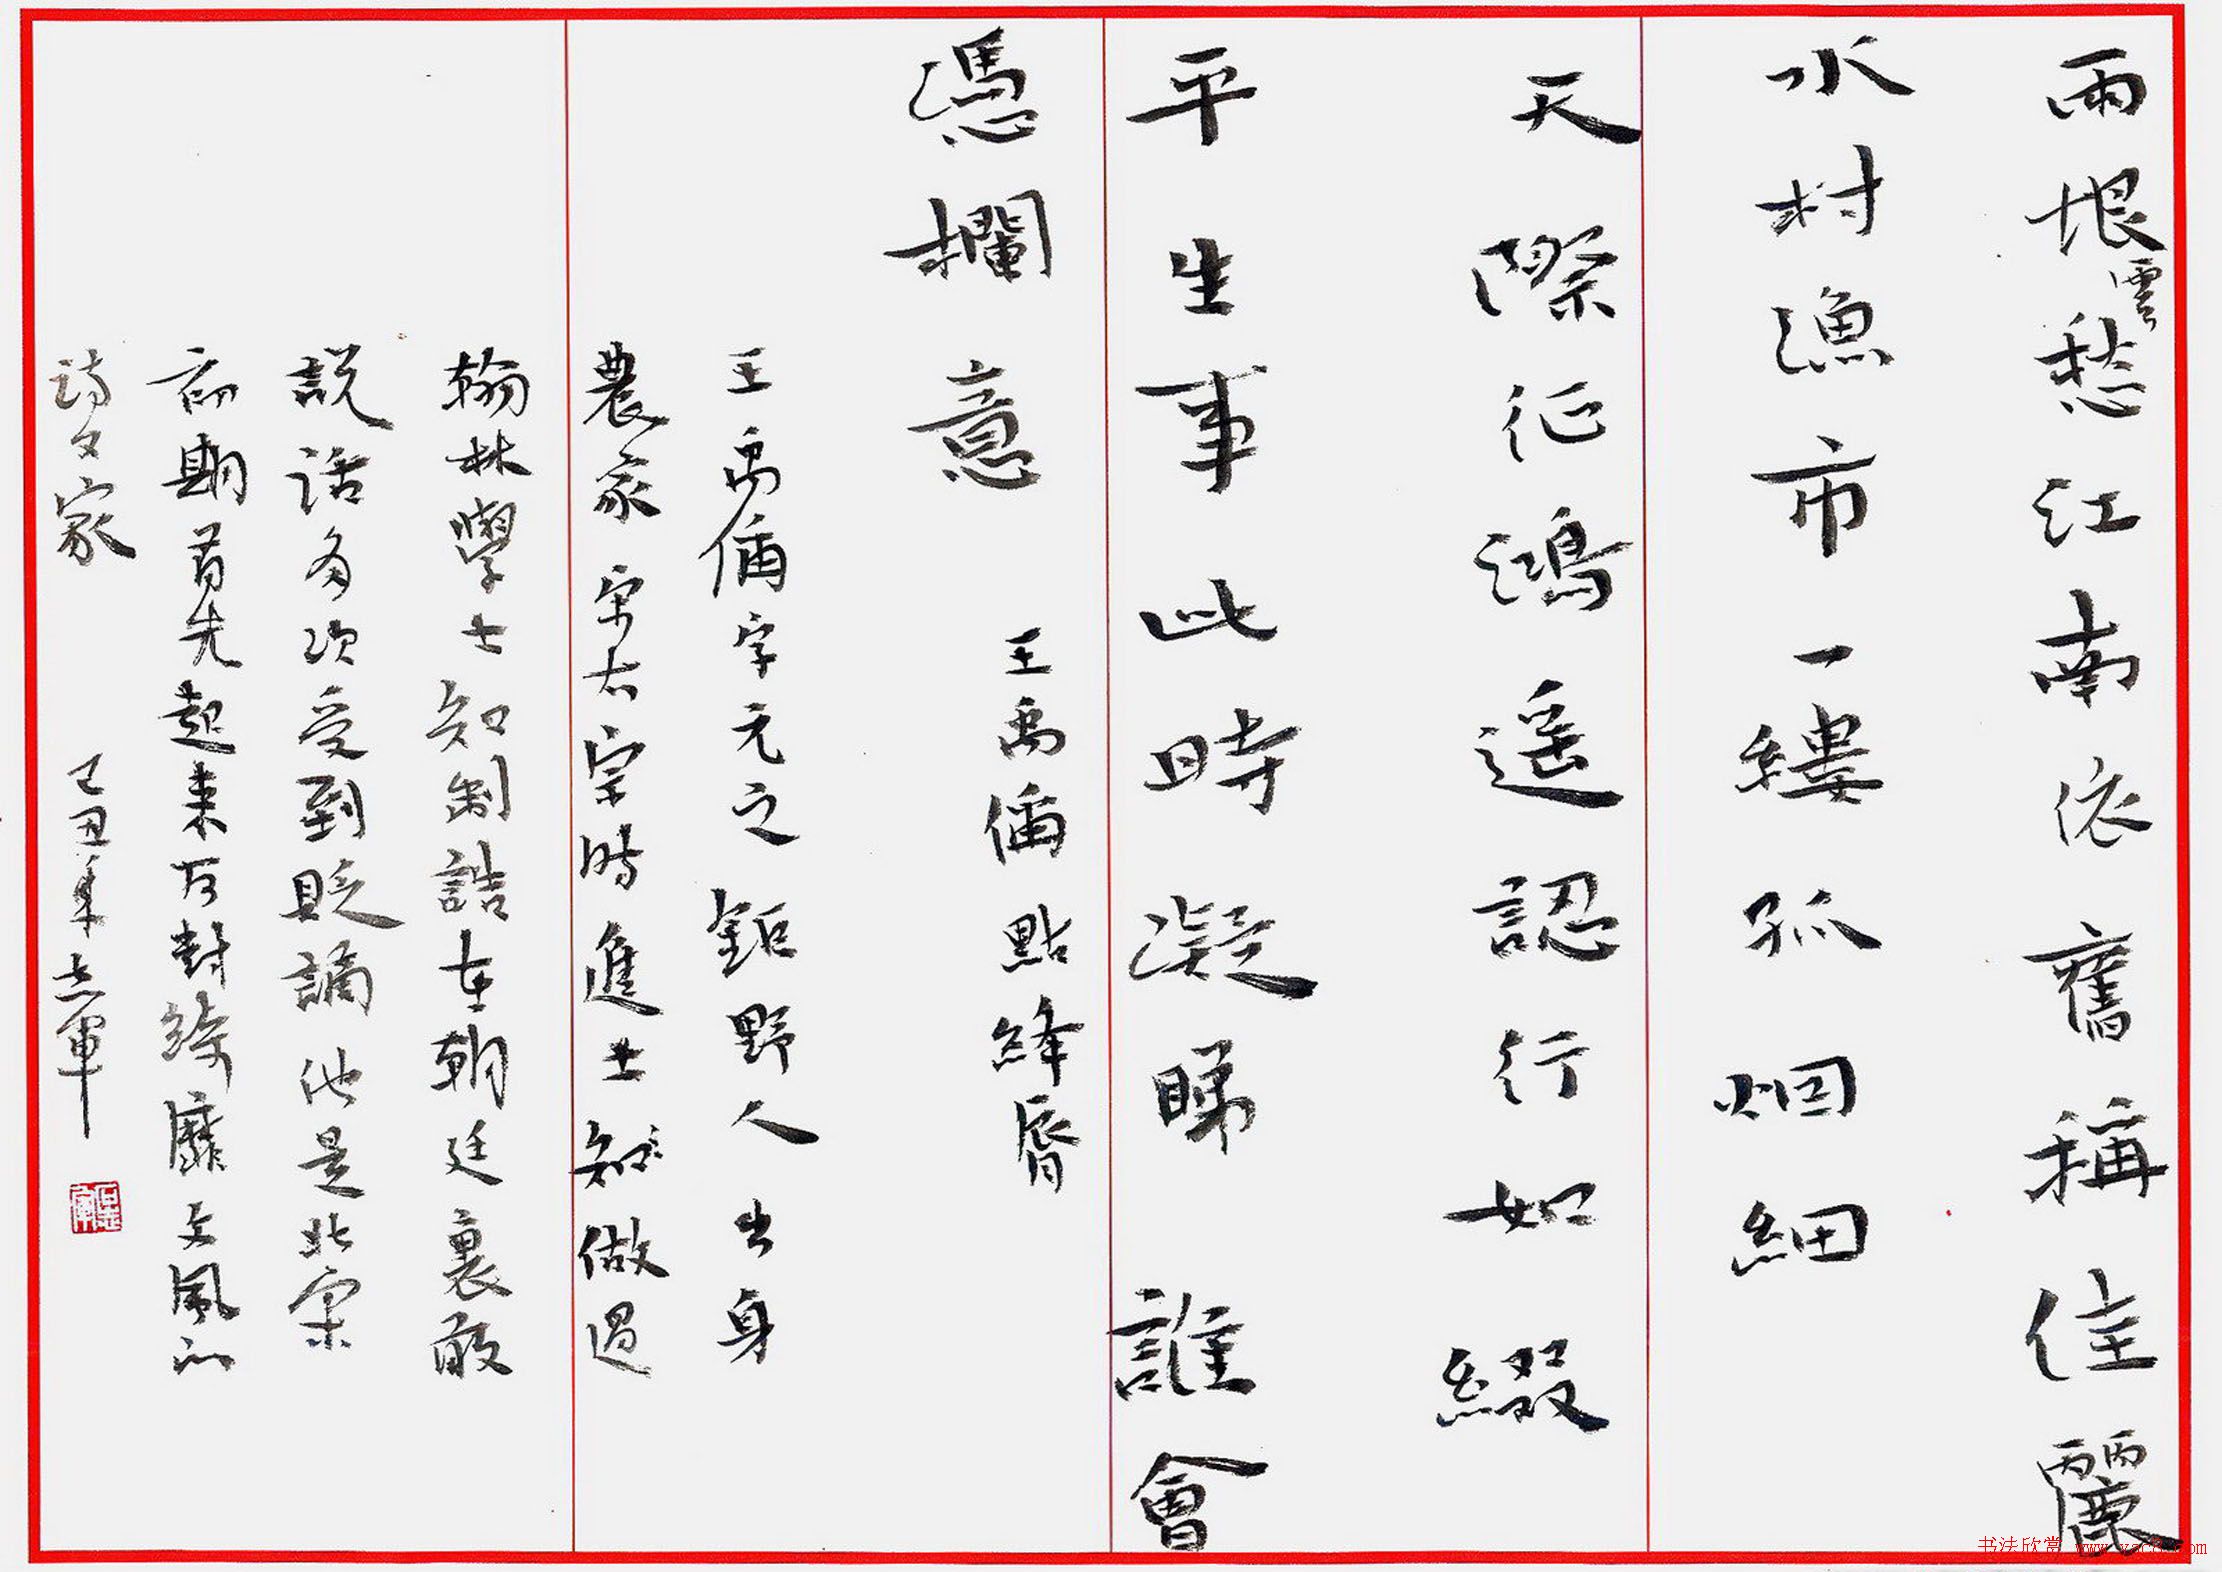 雨恨雲愁江南依舊稱佳麗
水村漁市一縷孤烟細
天際征鴻遥認行如綴
平生事此時凝睇誰會
憑欄意
王禹偁點絳唇
王禹偁字元之鉅野人出身
農家宋太宗時進士做過
翰林學士知制誥在朝廷裏敢
説話多次受到貶謫他是北宋
初期首先起来反對綺靡文風的
詩文家
己丑年志軍
书法欣赏